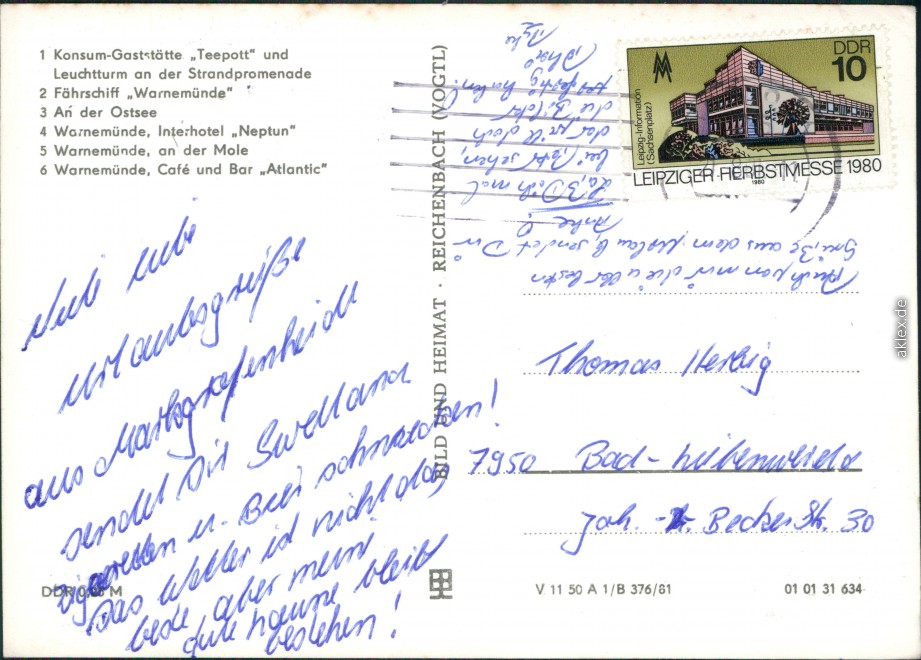 1 Konsum-Gaststätte „Teepott" und
Leuchtturm an der Strandpromenade
2 Fährschiff „Warnemünde"
3 An der Ostsee
4 Warnemünde, Interhotel „Neptun"
5 Warnemünde, an der Mole
6 Warnemünde, Café und Bar „Atlantic"
Viele liebe
Urlaubsgrüße
aus Markgrafenheide
sendet Dir Swetlana
Zigaretten u. Bier schmecken!
Das Wetter ist nicht das
beste, aber meine
gute Laune bleibt
bestehen!
DDR 0,20 M
BILD UND HEIMAT · REICHENBACH (VOGTL)
DDR
10
Leipzig-Information
(Sachsenplatz)
LEIPZIGER HERBSTMESSE 1980
1980
Auch von mir die aller besten
Grüße aus dem Urlaub, sendet Dir
Anke!
Laß Dich mal
bei sehen,
der will doch
die Bilder
fertig haben!
Thomas Herbig
7950 Bad-Liebenwerda
Joh.-R. Becher Str. 30
V 11 50 A 1/B 376/81
01 01 31 634
aklex.de